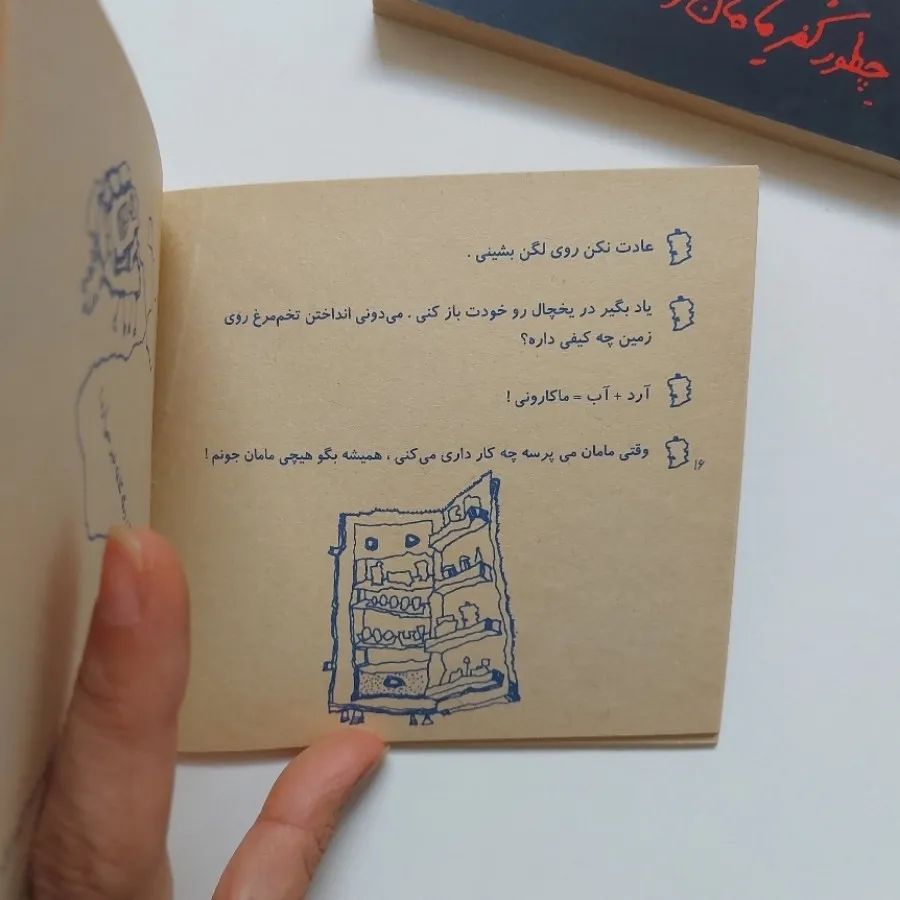 چطور کفر مامان
عادت نکن روی لگن بشینی .
یاد بگیر در یخچال رو خودت باز کنی . می‌دونی انداختن تخم‌مرغ روی
زمین چه کیفی داره؟
آرد + آب = ماکارونی !
وقتی مامان می پرسه چه کار داری می‌کنی ، همیشه بگو هیچی مامان جونم !
۱۶